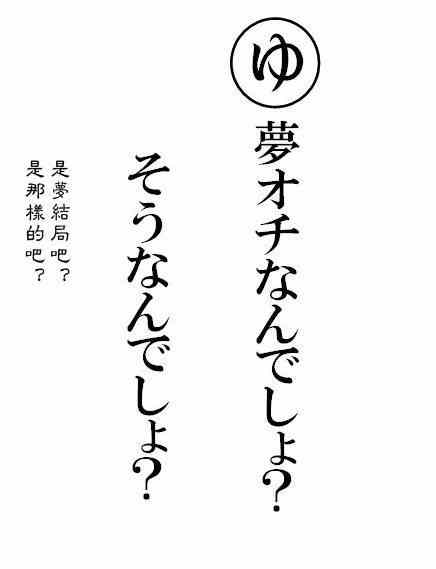 ゆ
夢オチなんでしょ？
そうなんでしょ？
是夢結局吧？
是那樣的吧？